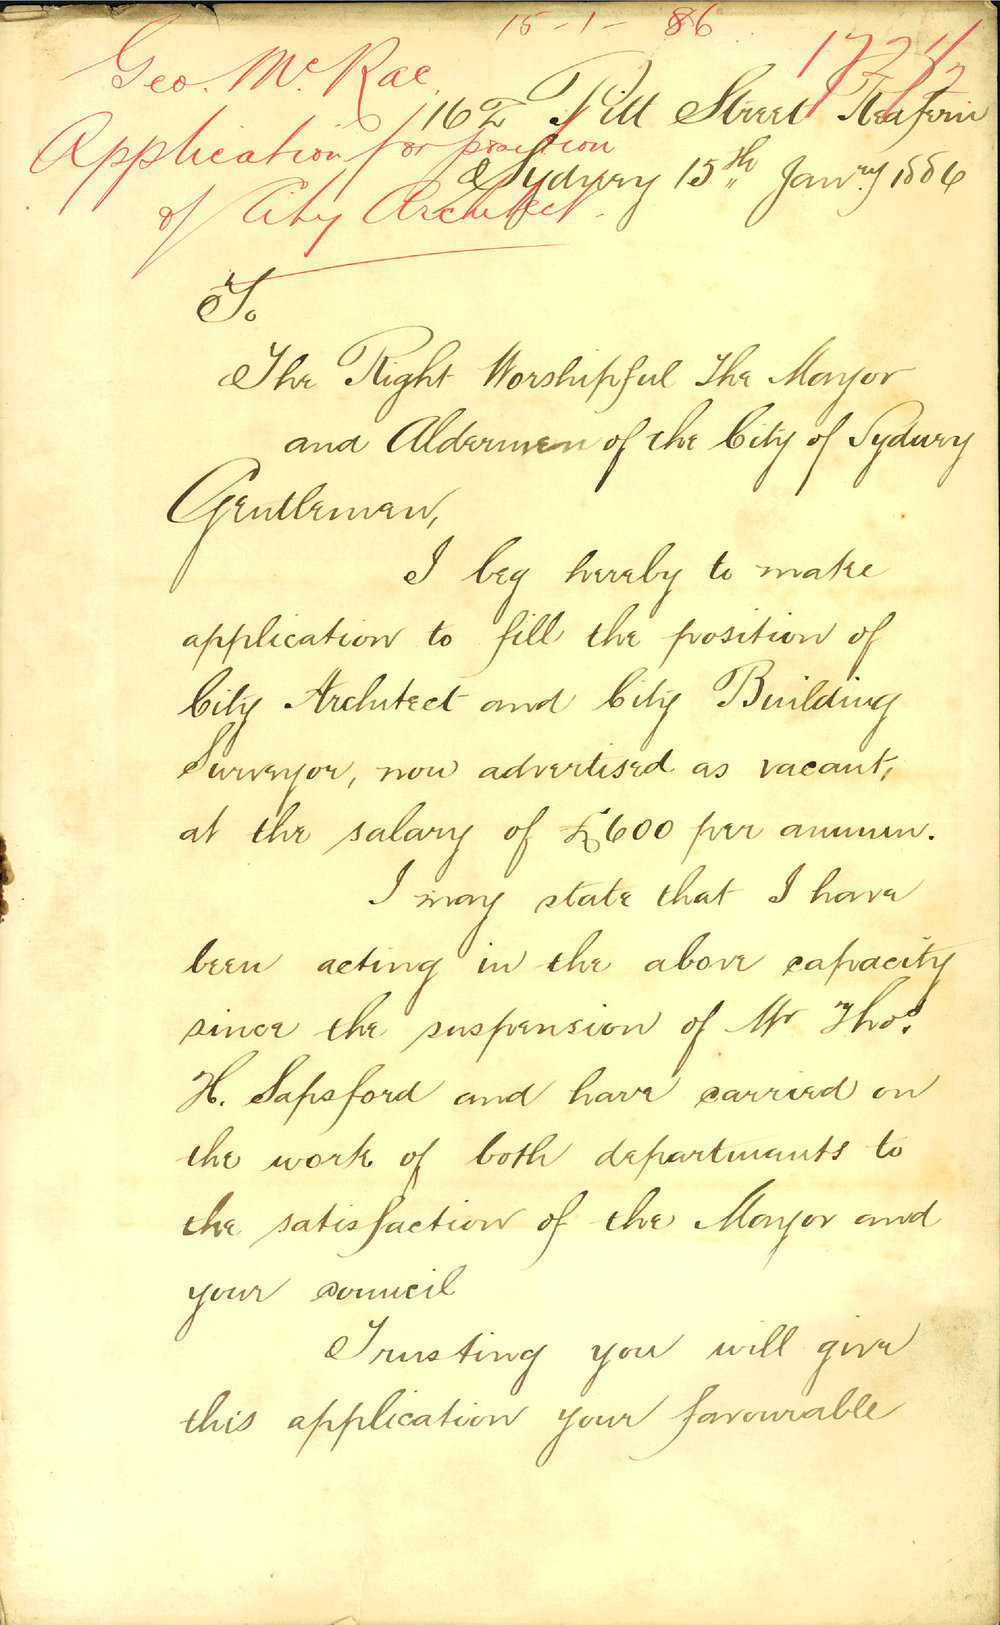 15-1-86
Geo. McRae
Application for position
of City Architect.
162 Pitt Street Redfern
Sydney 15th Janry 1886
To
The Right Worshipful The Mayor
and Aldermen of the City of Sydney
Gentlemen,
I beg hereby to make
application to fill the position of
City Architect and City Building
Surveyor, now advertised as vacant,
at the salary of £600 per annum.
I may state that I have
been acting in the above capacity
since the suspension of Mr Thos.
H. Sapsford and have carried on
the work of both departments to
the satisfaction of the Mayor and
your council
Trusting you will give
this application your favourable